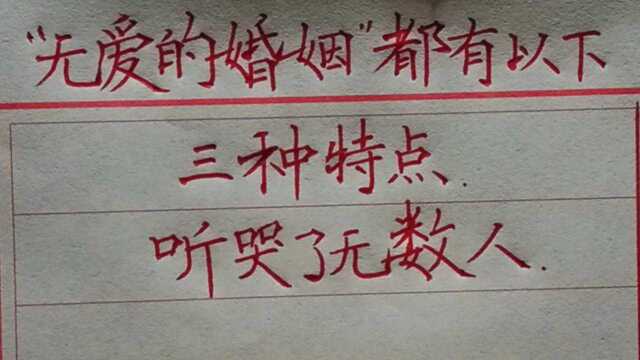 “无爱的婚姻”都有以下
三种特点.
听哭了无数人.